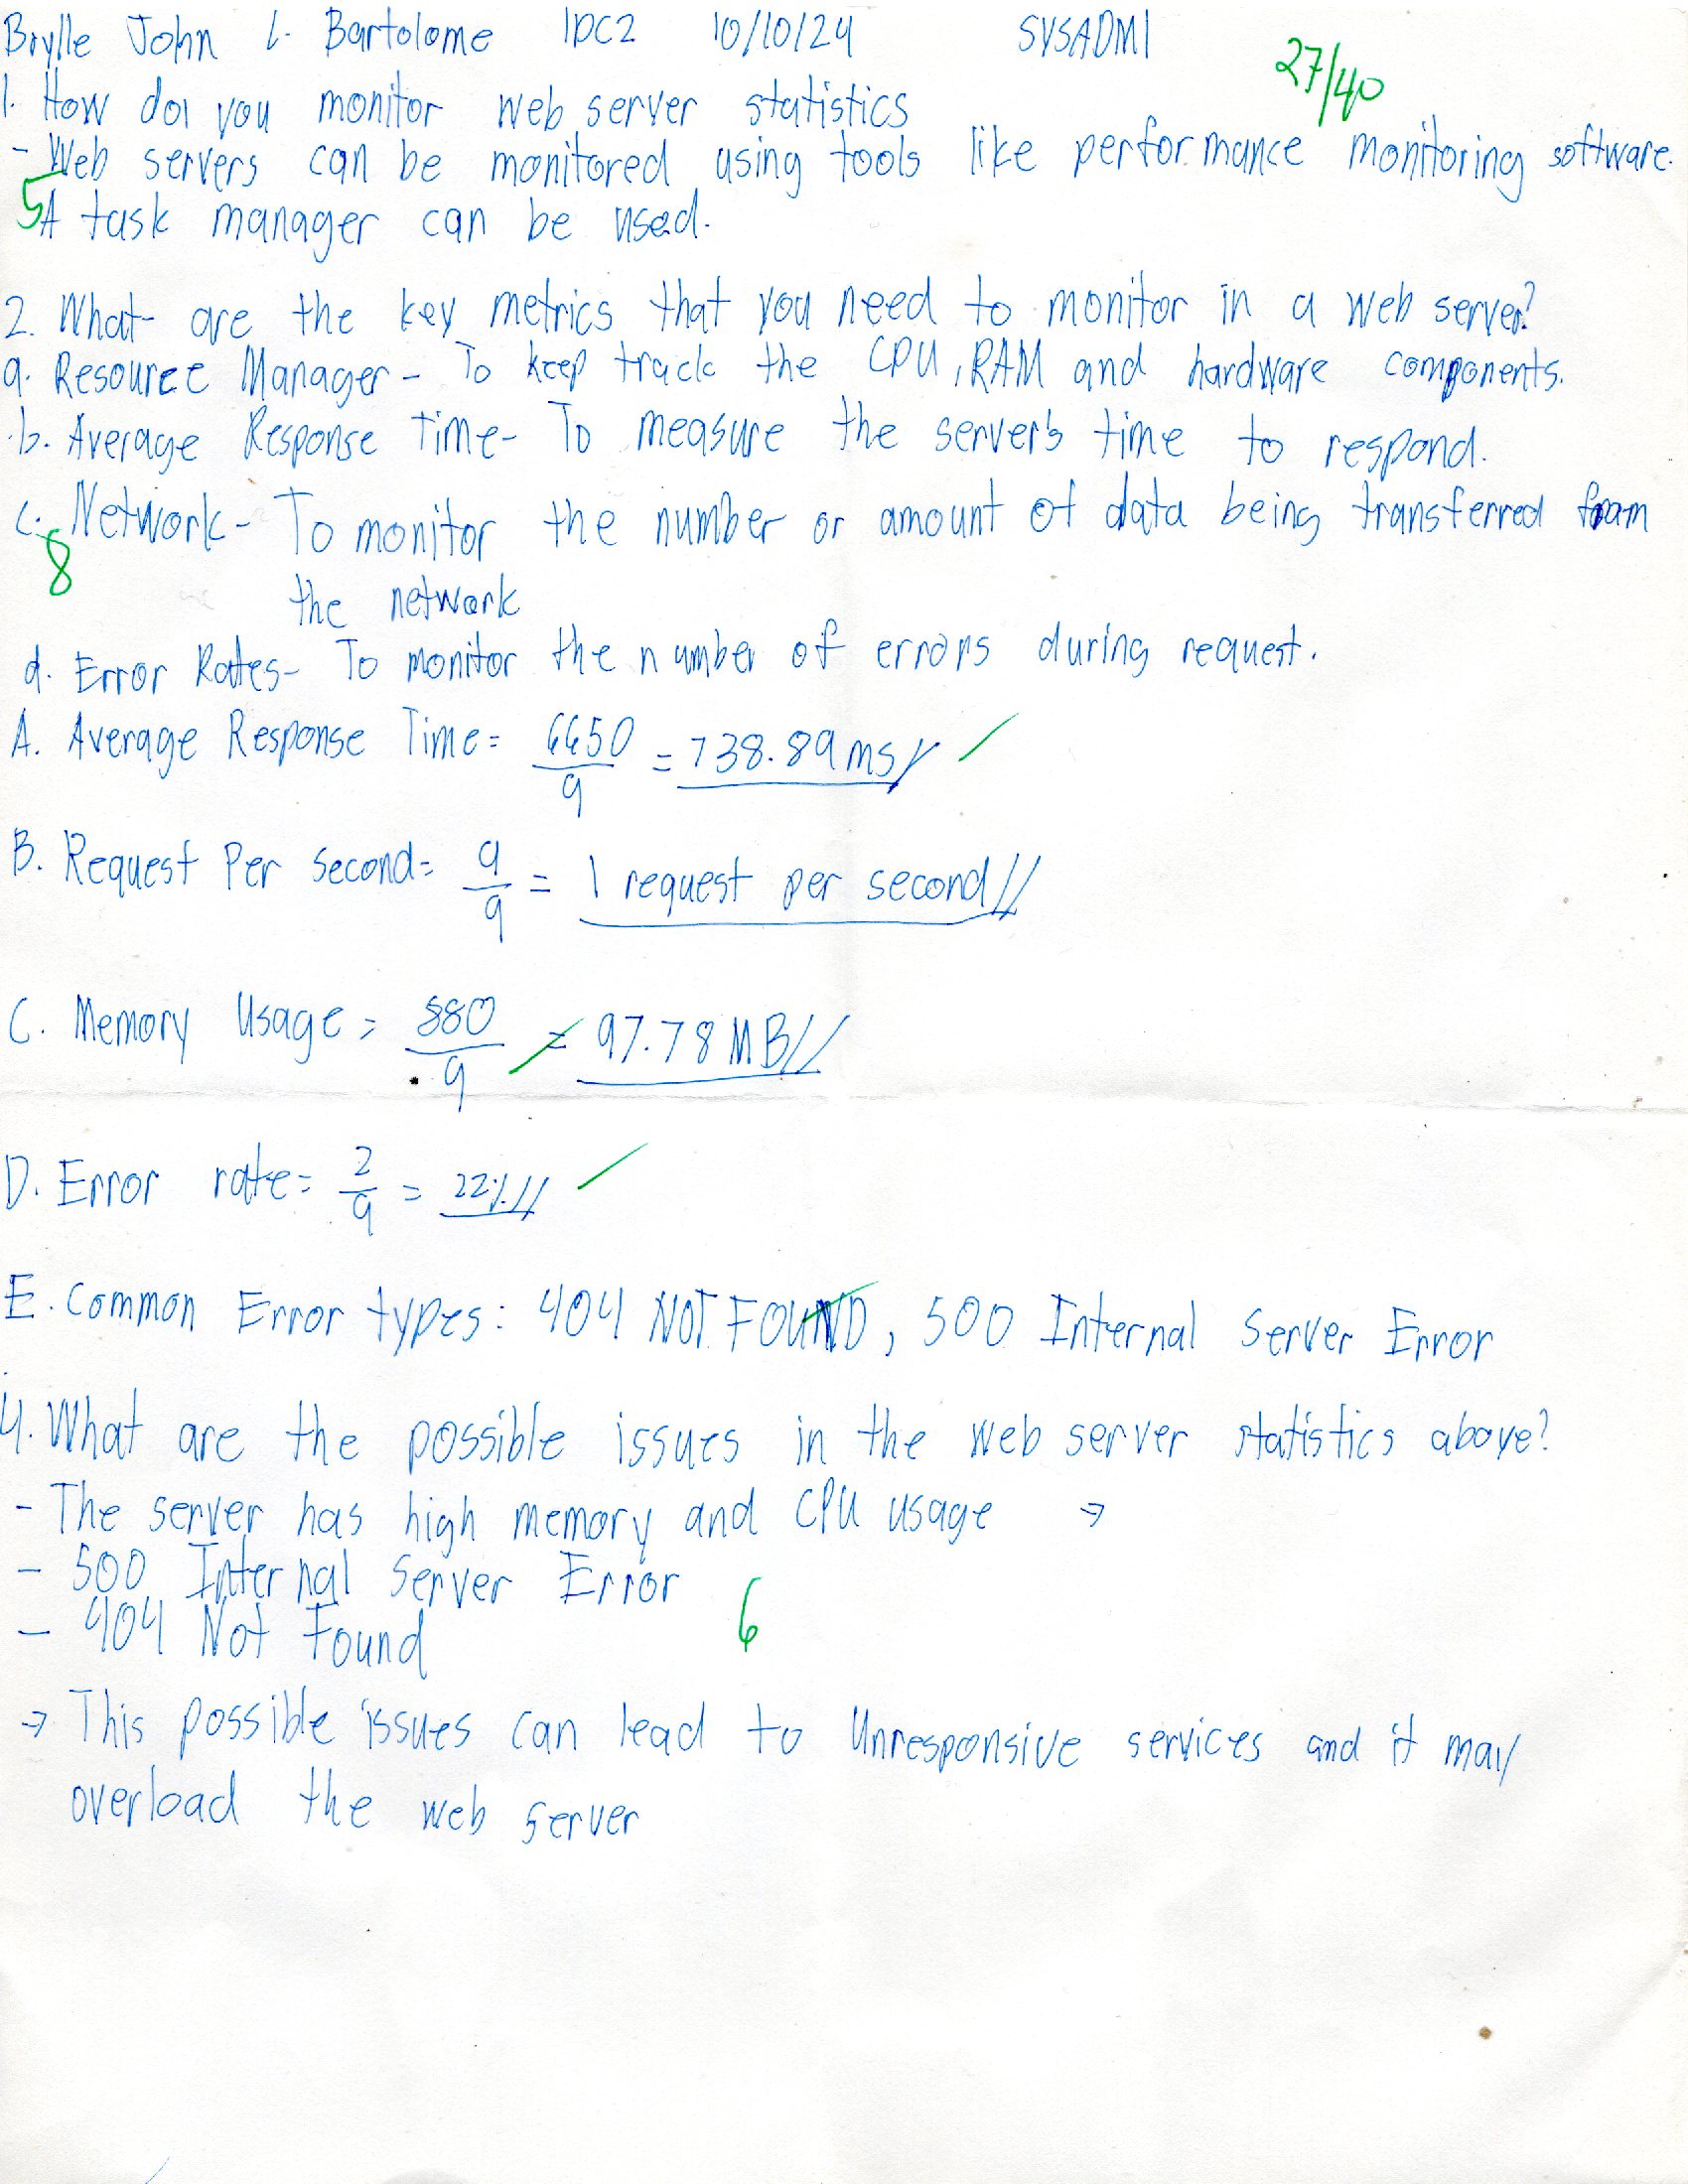 Brylle John L. Bartolome IDC2 10/10/24 SYSADM1
27/40
1. How do you monitor web server statistics
- Web servers can be monitored using tools like performance monitoring software.
5
A task manager can be used.
2. What are the key metrics that you need to monitor in a web server?
a. Resource Manager - To keep track the CPU, RAM and hardware components.
b. Average Response Time - To measure the server's time to respond.
c. Network - To monitor the number or amount of data being transferred from
8
the network
d. Error Rates - To monitor the number of errors during request.
A. Average Response Time = 6650/9 = 738.89 ms //
B. Request Per Second = 9/9 = 1 request per second //
C. Memory Usage = 880/9 = 97.78 MB //
D. Error rate = 2/9 = 22% //
E. Common Error types: 404 NOT FOUND, 500 Internal Server Error
4. What are the possible issues in the web server statistics above?
- The server has high memory and CPU usage →
- 500 Internal Server Error
6
- 404 Not Found
→ This possible issues can lead to unresponsive services and it may
overload the web server